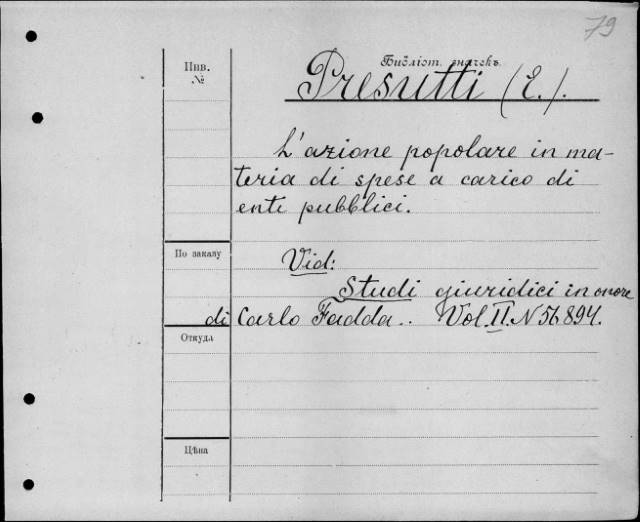 79
Библіот. значекъ
Инв.
№
Presutti (E.).
L'azione popolare in ma-
teria di spese a carico di
enti pubblici.
По заказу
Vid:
Studi giuridici in onore
di Carlo Fadda.. Vol. II. N 56894.
Откуда
Цѣна